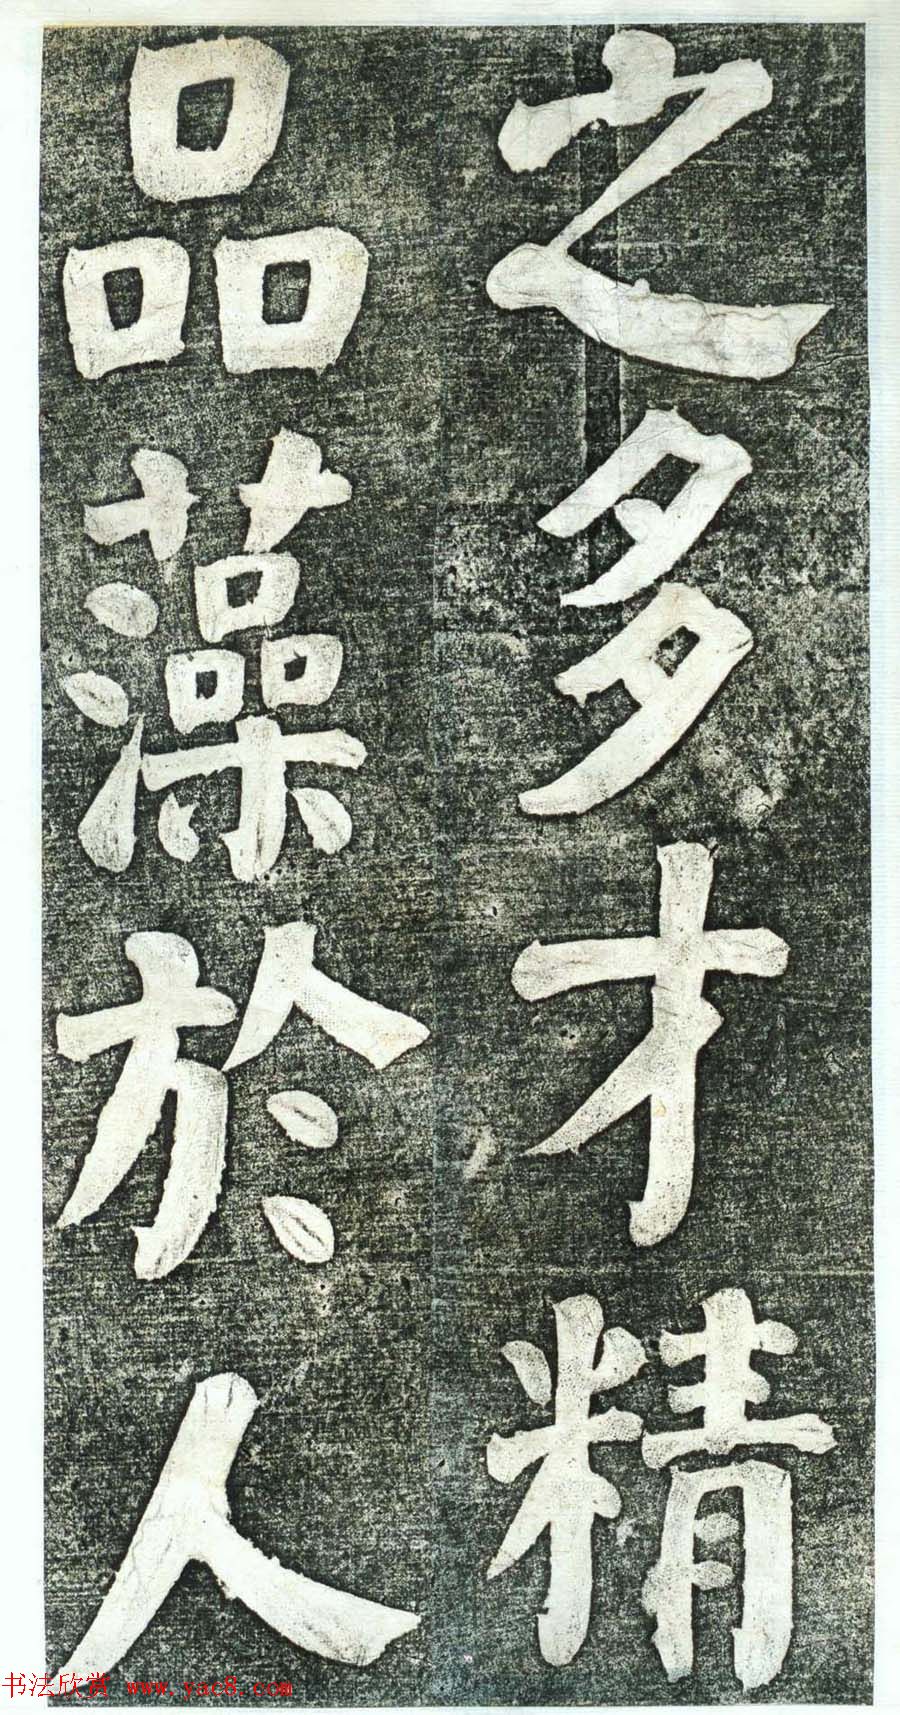 之多才精
品藻於人
书法欣赏 www.yac8.com